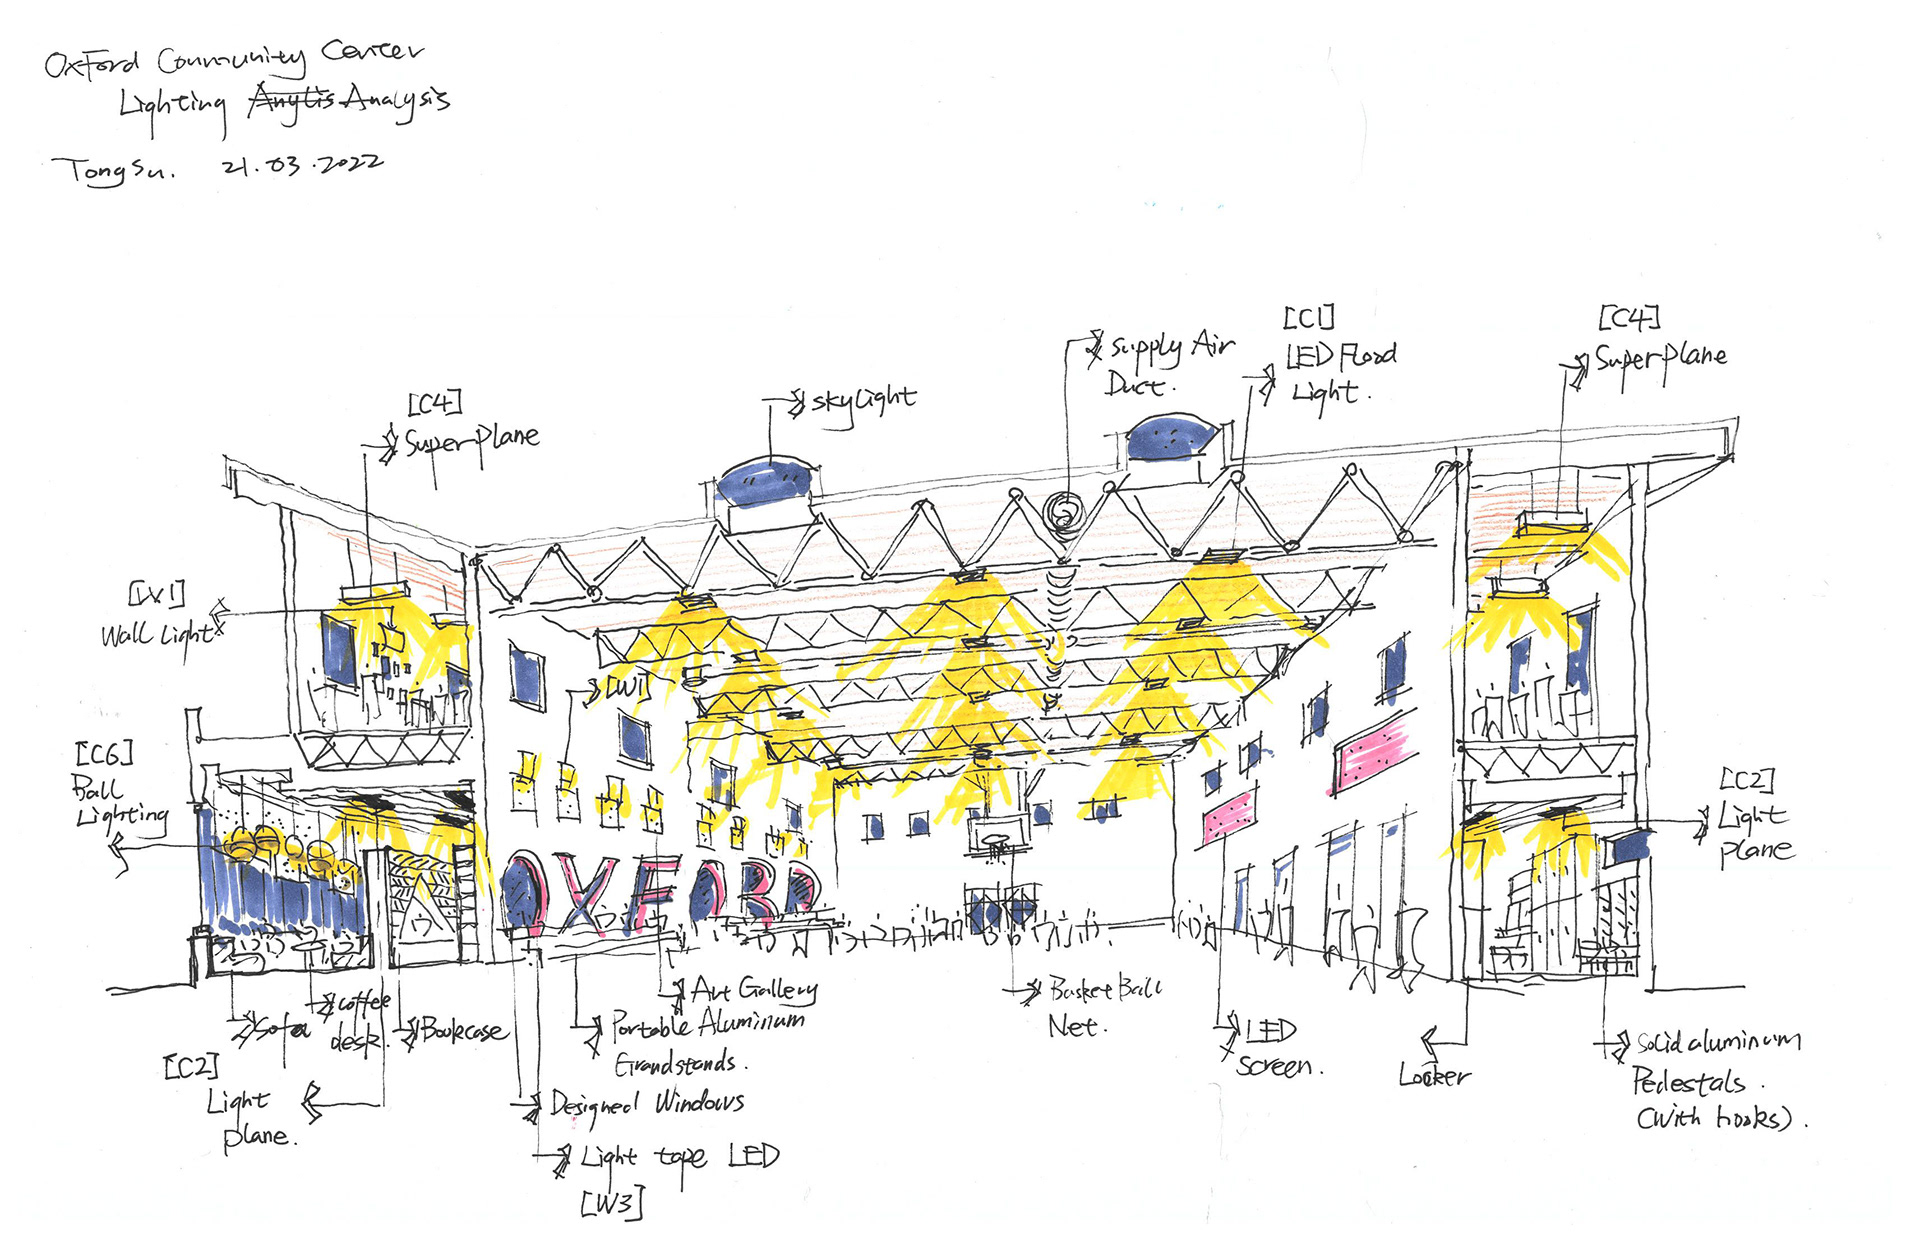 Oxford Community Center
Lighting Anylis Analysis
Tong Su. 21.03.2022
[C4]
SuperPlane
skylight
Supply Air
Duct.
[C1]
LED Flood
Light.
[C4]
Superplane
[W1]
Wall Light
[W1]
[C6]
Ball
Lighting
[C2]
Light
plane
OXFORD
Sofa
coffee
desk.
Bookcase
Art Gallery
Portable Aluminum
Grandstands.
Basket Ball
Net.
LED
Screen.
Locker
Solid aluminum
Pedestals.
(with hooks).
[C2]
Light
plane.
Designed Windows
Light tape LED
[W3]